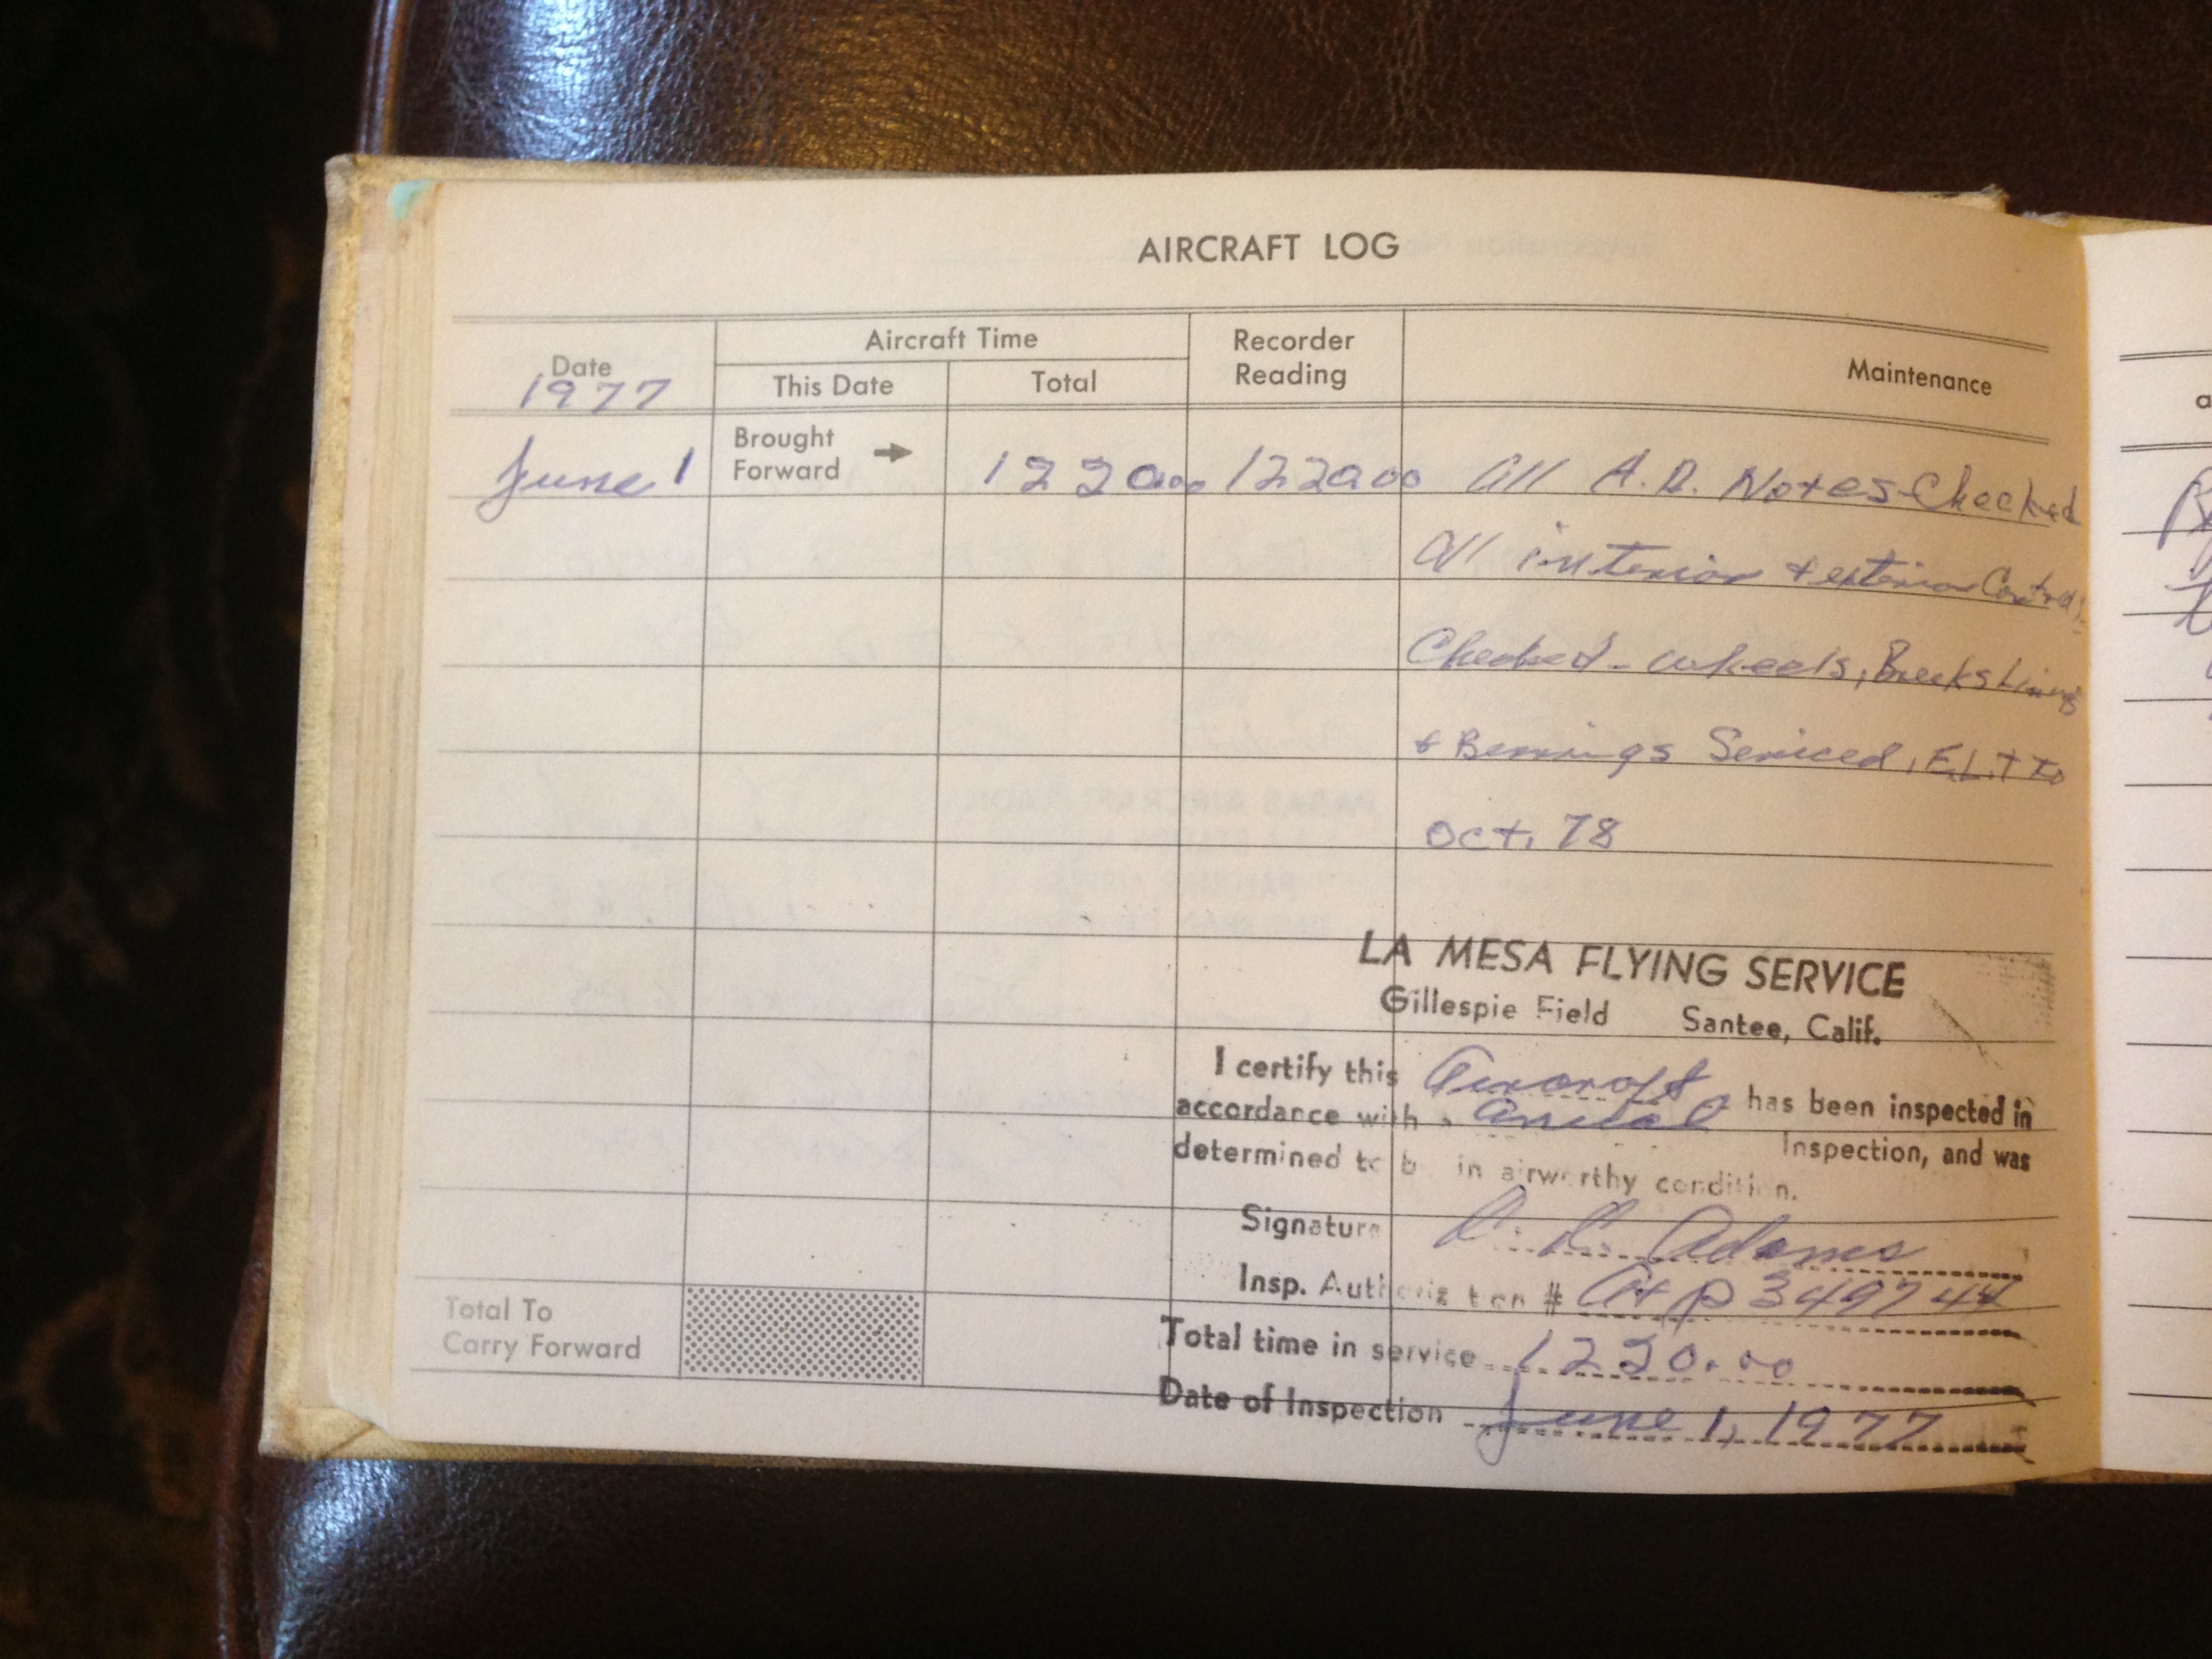 AIRCRAFT LOG
Date
1977
Aircraft Time
This Date
Total
Recorder
Reading
Maintenance
June 1
Brought
Forward
1220.00
1220.00
All A.D. Notes Checked
All interior & exterior Controls
Checked - wheels, Breeks Linings
& Bearings Serviced, E.L.T to
Oct. 78
LA MESA FLYING SERVICE
Gillespie Field Santee, Calif.
I certify this Aircraft has been inspected in
accordance with a Annual
Inspection, and was
determined to be in airworthy condition.
Signature Adams
Insp. Authorization # A+P 349744
Total time in service 1220.00
Date of Inspection June 1, 1977
Total To
Carry Forward